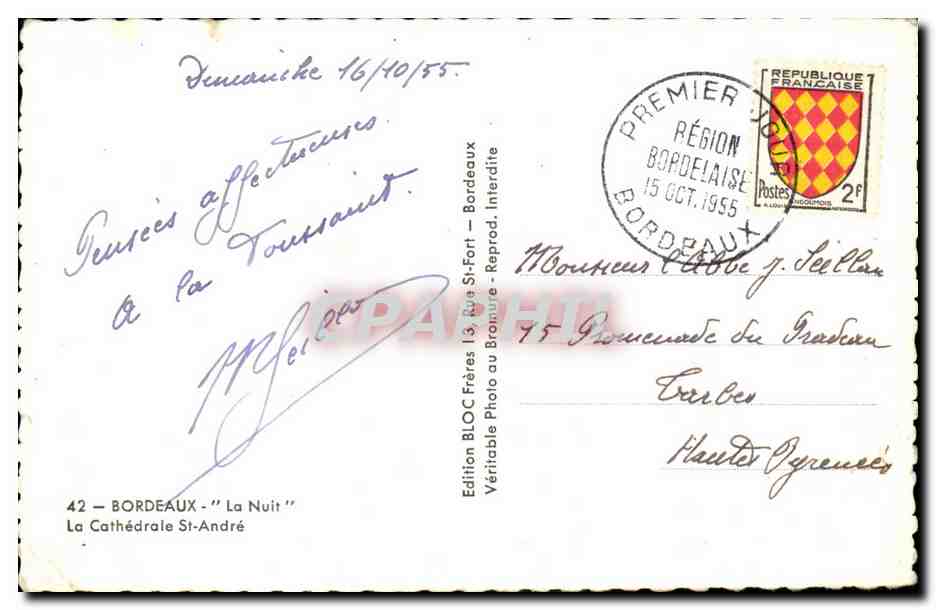 Dimanche 16/10/55.
Pensées affectueuses
à la Toussaint.
42 — BORDEAUX - " La Nuit "
La Cathédrale St-André
Edition BLOC Frères 13, Rue St-Fort — Bordeaux
Véritable Photo au Bromure - Reprod. Interdite
CPAPHIL
PREMIER JOUR
RÉGION
BORDELAISE
15 OCT. 1955
BORDEAUX
REPUBLIQUE
FRANÇAISE
Postes 2F
ANGOUMOIS
Monsieur l'Abbé J. Seillan
15 Promenade du Pradeau
Tarbes
Hautes Pyrénées